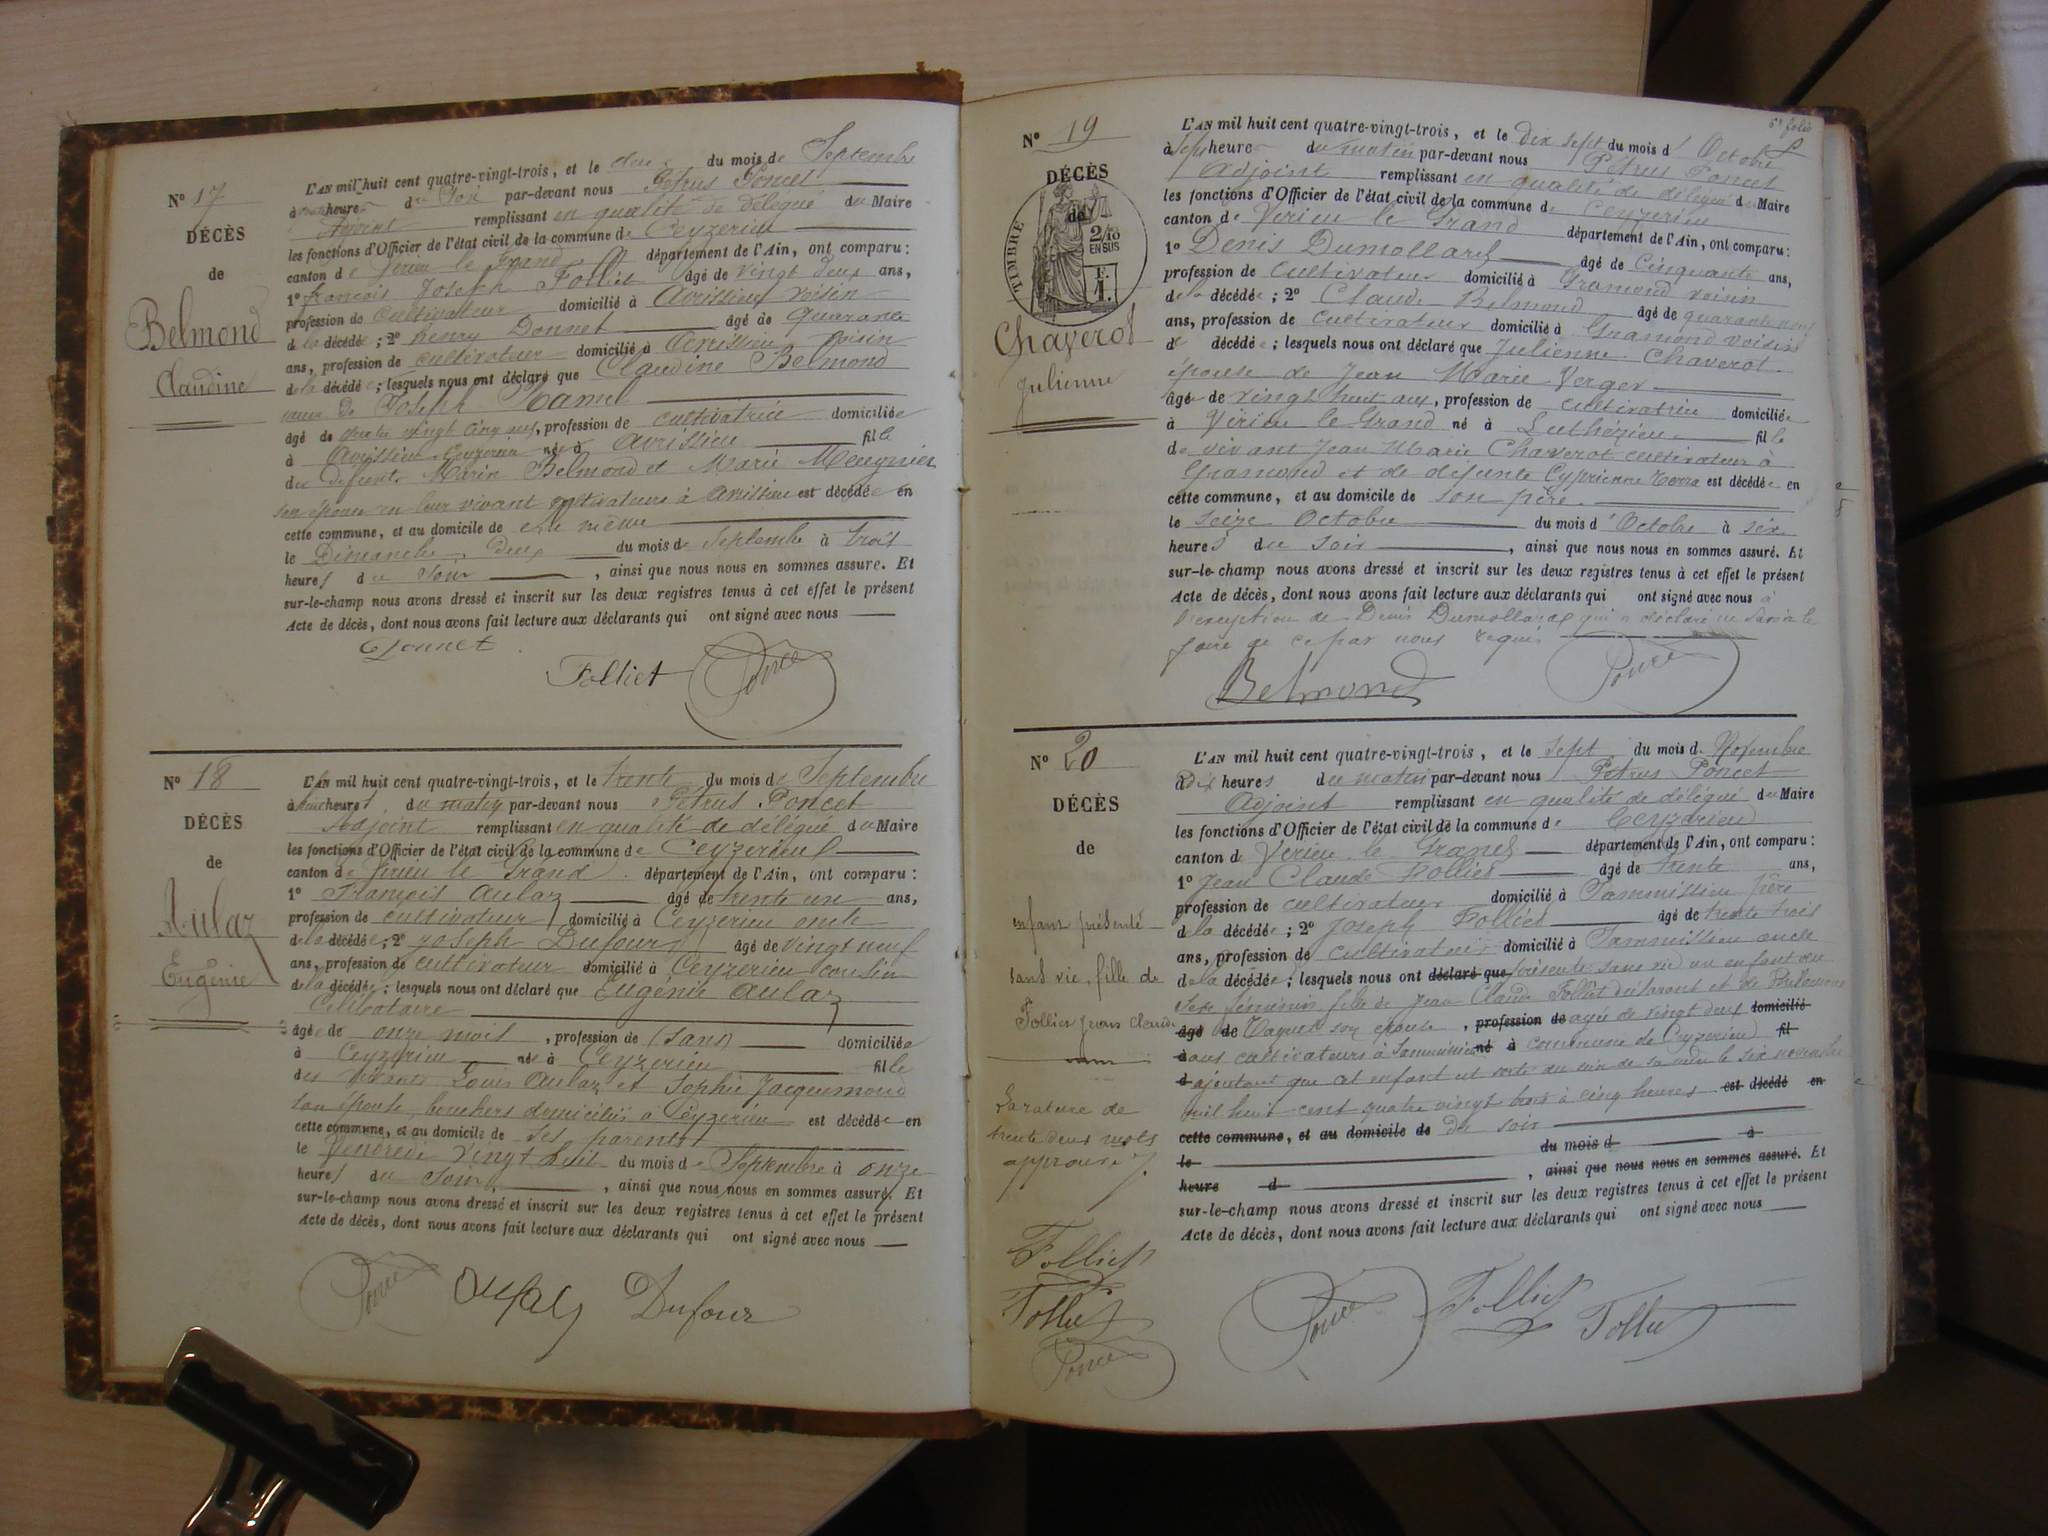 N° 17
DÉCÈS
de
Belmond
Claudine
L'AN mil huit cent quatre-vingt-trois, et le deux du mois de Septembre
à heures du Soir par-devant nous Pétrus Poncet
Adjoint remplissant en qualité de délégué du Maire
les fonctions d'Officier de l'état civil de la commune de Ceyzerieu
canton de Virieu le Grand département de l'Ain, ont comparu:
1° françois Joseph Folliet âgé de vingt deux ans,
profession de cultivateur domicilié à Avrissieu voisin
de la décédée; 2° henry Donnet âgé de quarante
ans, profession de cultivateur domicilié à Avrissieu voisin
de la décédée; lesquels nous ont déclaré que Claudine Belmond
veuve de Joseph
âgé de quatre vingt cinq ans, profession de cultivatrice domiciliée
à Avrissieu Ceyzerieu née à Avrissieu fille
des defunts Marin Belmond et Marie Meugnier
son épouse en leur vivant cultivateurs à Avrissieu est décédée en
cette commune, et au domicile de elle même
le Dimanche deux du mois de Septembre à trois
heures du soir, ainsi que nous nous en sommes assuré. Et
sur-le-champ nous avons dressé et inscrit sur les deux registres tenus à cet effet le présent
Acte de décès, dont nous avons fait lecture aux déclarants qui ont signé avec nous
Donnet
Folliet Poncet
N° 18
DÉCÈS
de
Aulaz
Eugénie
L'AN mil huit cent quatre-vingt-trois, et le trente du mois de Septembre
à heures du matin par-devant nous Pétrus Poncet
Adjoint remplissant en qualité de délégué du Maire
les fonctions d'Officier de l'état civil de la commune de Ceyzerieu
canton de Virieu le Grand département de l'Ain, ont comparu:
1° François Aulaz âgé de trente un ans,
profession de cultivateur domicilié à Ceyzerieu oncle
de la décédée; 2° Joseph Dufour âgé de vingt neuf
ans, profession de cultivateur domicilié à Ceyzerieu cousin
de la décédée; lesquels nous ont déclaré que Eugénie Aulaz
Célibataire
âgée de onze mois, profession de (sans) domiciliée
à Ceyzerieu née à Ceyzerieu fille
des vivants Louis Aulaz et Sophie Jacquemond
son épouse, bouchers domiciliés à Ceyzerieu est décédée en
cette commune, et au domicile de ses parents
le Vendredi vingt huit du mois de Septembre à onze
heures du soir, ainsi que nous nous en sommes assuré. Et
sur-le-champ nous avons dressé et inscrit sur les deux registres tenus à cet effet le présent
Acte de décès, dont nous avons fait lecture aux déclarants qui ont signé avec nous
Poncet Aulaz Dufour
6e folio
N° 19
DÉCÈS
de
TIMBRE
2/10
EN SUS
F.
1.
Chaverot
Julienne
L'AN mil huit cent quatre-vingt-trois, et le dix sept du mois d'Octobre
à sept heures du matin par-devant nous Pétrus Poncet
Adjoint remplissant en qualité de délégué du Maire
les fonctions d'Officier de l'état civil de la commune de Ceyzerieu
canton de Virieu le Grand département de l'Ain, ont comparu:
1° Denis Dumollard âgé de Cinquante ans,
profession de Cultivateur domicilié à Gramond voisin
de la décédée; 2° Claude Belmond âgé de quarante neuf
ans, profession de cultivateur domicilié à Gramond voisin
de décédée; lesquels nous ont déclaré que Julienne Chaverot
épouse de Jean Marie Verger
âgée de vingt huit ans, profession de cultivatrice domiciliée
à Virieu le Grand né à Luthézieu fille
de vivant Jean Marie Chaverot cultivateur à
Gramond et de défunte Cyprienne est décédée en
cette commune, et au domicile de son père.
le seize Octobre du mois d'Octobre à six
heures du soir, ainsi que nous nous en sommes assuré. Et
sur-le-champ nous avons dressé et inscrit sur les deux registres tenus à cet effet le présent
Acte de décès, dont nous avons fait lecture aux déclarants qui ont signé avec nous à
l'exception de Denis Dumollard qui a déclaré ne savoir le
faire de ce par nous requis
Belmond Poncet
N° 20
DÉCÈS
de
enfant présenté
sans vie, fille de
Folliet Jean Claude
La rature de
trente deux mots
approuvé
Folliet
Folliet
Poncet
L'AN mil huit cent quatre-vingt-trois, et le sept du mois de Novembre
à dix heures du matin par-devant nous Pétrus Poncet
Adjoint remplissant en qualité de délégué du Maire
les fonctions d'Officier de l'état civil de la commune de Ceyzerieu
canton de Virieu le Grand département de l'Ain, ont comparu:
1° Jean Claude Folliet âgé de trente ans,
profession de cultivateur domicilié à Sammissieu père
de la décédée; 2° Joseph Folliet âgé de trente trois
ans, profession de cultivateur domicilié à Sammissieu oncle
de la décédée; lesquels nous ont déclaré que présenté sans vie un enfant du
sexe féminin fille de Jean Claude Folliet déclarant et de Philomène
âgé de son épouse, profession de agée de vingt deux domicilié
à tous cultivateurs à Sammissieu né à commune de Ceyzerieu fil
d ajoutant que cet enfant est sorti du sein de sa mère le six novembre
mil huit cent quatre vingt trois à cinq heures est décédé en
cette commune, et au domicile de du soir
le du mois d à
heure d, ainsi que nous nous en sommes assuré. Et
sur-le-champ nous avons dressé et inscrit sur les deux registres tenus à cet effet le présent
Acte de décès, dont nous avons fait lecture aux déclarants qui ont signé avec nous
Poncet Folliet Folliet